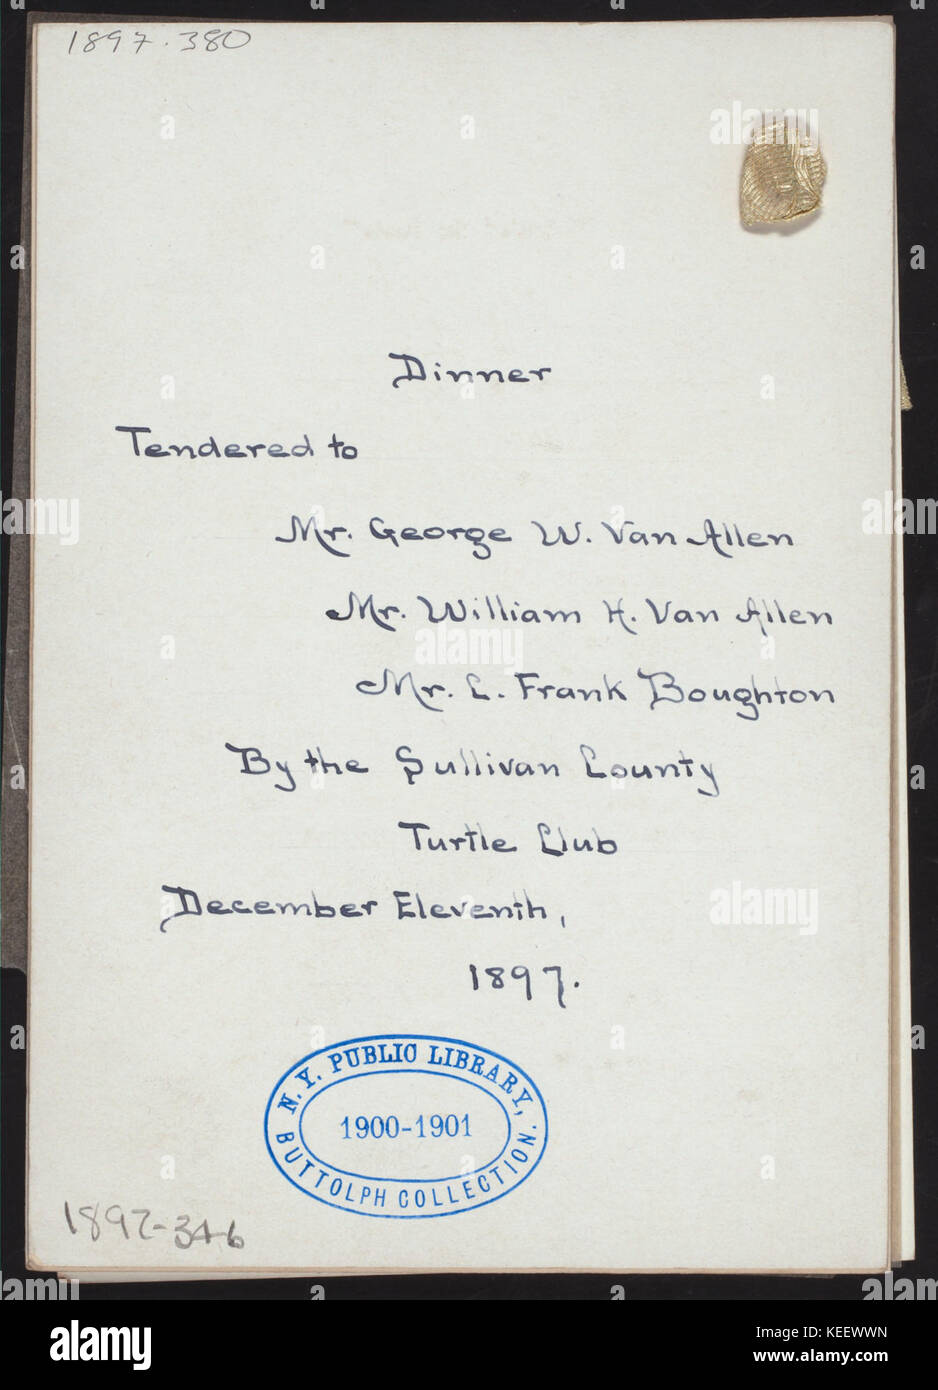 1897.380
Dinner
Tendered to
Mr. George W. Van Allen
Mr. William H. Van Allen
Mr. L. Frank Boughton
By the Sullivan County
Turtle Club
December Eleventh,
1897.
N.Y. PUBLIC LIBRARY,
1900-1901
BUTTOLPH COLLECTION.
1897-346
a alamy stock photo
KEEWWN
www.alamy.com